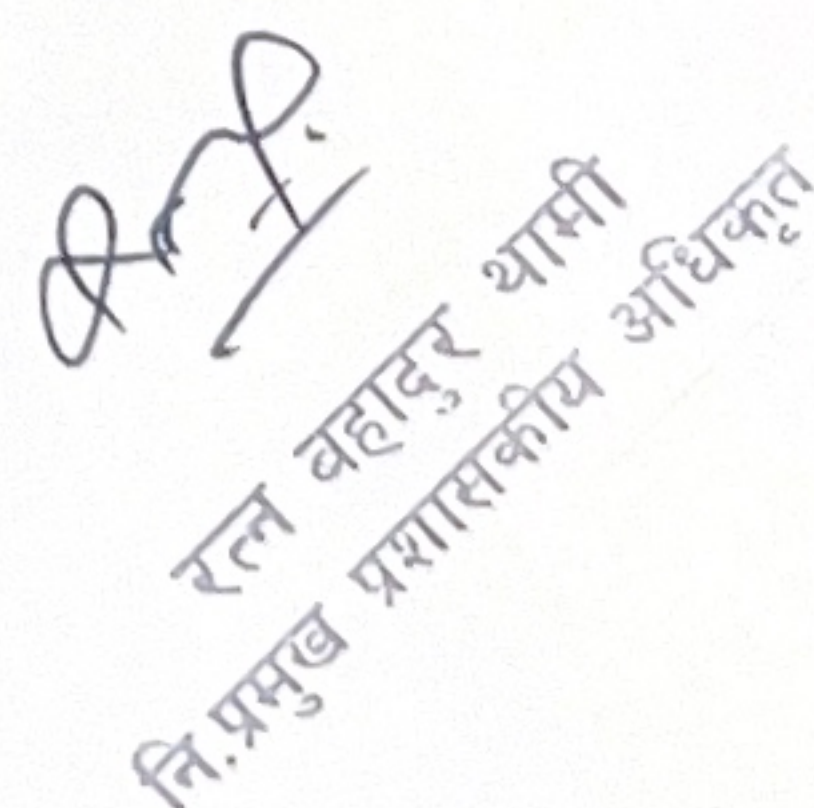 रत्न वहादुर थामी
नि.प्रमुख प्रशासकीय अधिकृत